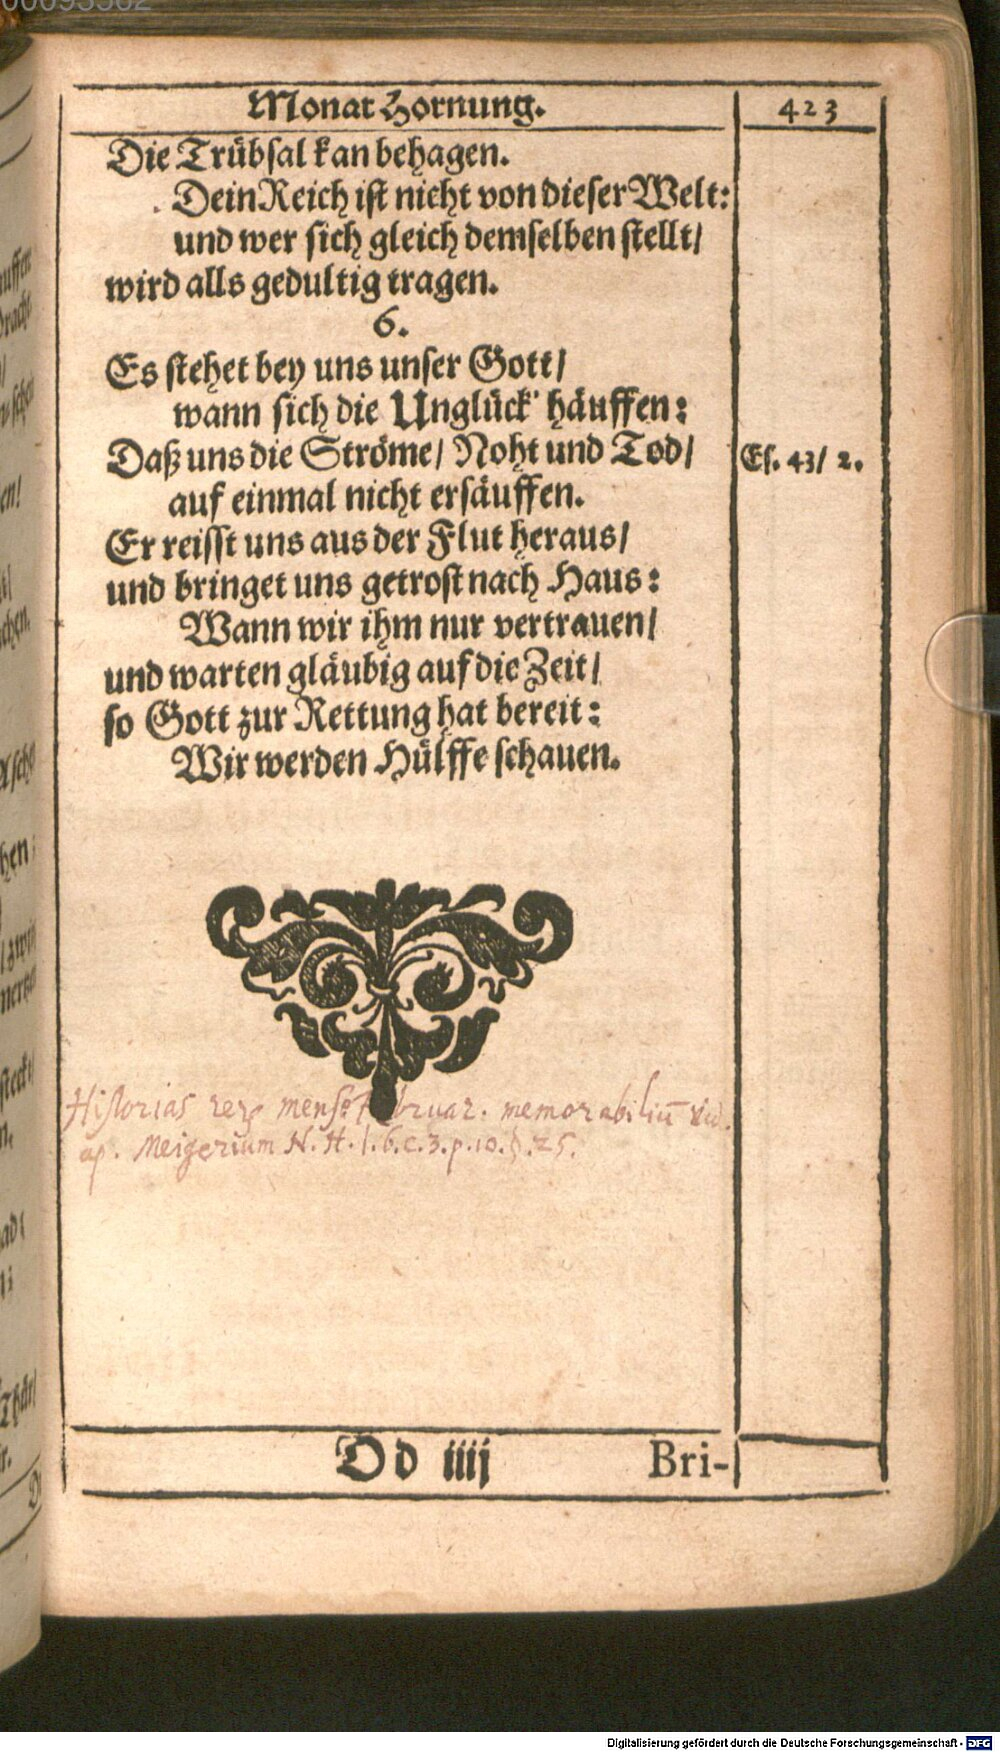 Monat Hornung. 423
Die Trübsal kan behagen.
Dein Reich ist nicht von dieser Welt:
und wer sich gleich demselben stellt/
wird alls gedultig tragen.
6.
Es stehet bey uns unser Gott/
wann sich die Unglück' häuffen:
Daß uns die Ströme/ Noht und Tod/
Es. 43/ 2.
auf einmal nicht ersäuffen.
Er reisst uns aus der Flut heraus/
und bringet uns getrost nach Haus:
Wann wir ihm nur vertrauen/
und warten gläubig auf die Zeit/
so Gott zur Rettung hat bereit:
Wir werden Hülffe schauen.
Historias mense Februar. memorabiliū vid.
ap. Meigerium N. H. l. 6. c. 3. p. 10. §. 25.
Dd iiij Bri-
Digitalisierung gefördert durch die Deutsche Forschungsgemeinschaft - DFG